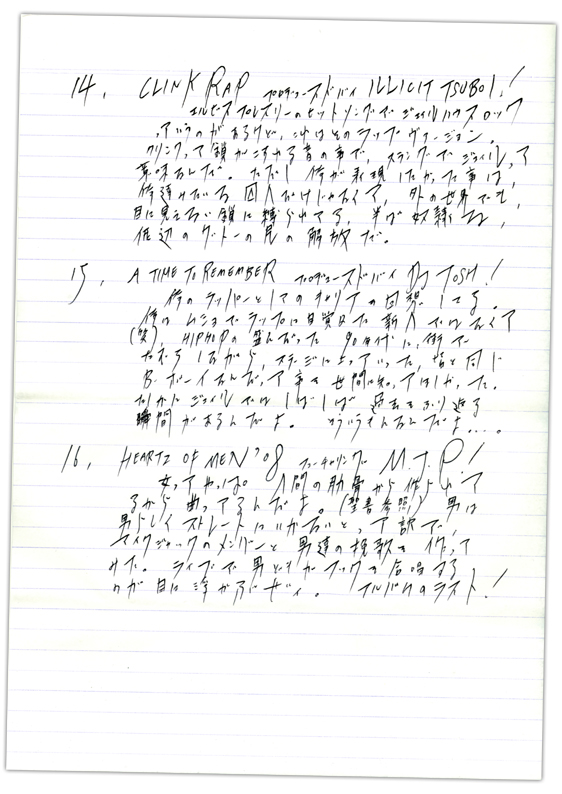 14. CLINK RAP プロデュースドバイ ILLICIT TSUBOI!
エルビス プレスリーのヒットソングで ジェイルハウスロック
っていうのがあるけど、これはそのラップヴァージョン。
クリンクって鎖がこすれる音の事で、スラングでジェイルって
意味なんだ。ただし俺が表現したかった事は、
俺達みたいな囚人だけじゃなくて、外の世界でも、
目に見えない鎖に縛られてる、半ば奴隷な、
底辺のゲットーの民の解放だ。
15. A TIME TO REMEMBER プロデュースドバイ DJ TOSH!
俺のラッパーとしてのキャリアの回想してる。
俺はムショでラップに目覚めた新人ではなくて
(笑)、HIPHOPの盛んだった90年代に、街で
だちしながら、ステージに立っていった、皆と同じ
B-ボーイなんだって事を世間に知ってほしかった。
たしかにジェイルではしばしば過去をふり返る
瞬間があるんだよ。フリースタイルなんだよ....
16. HEARTZ OF MEN '08 フューチャリング M.J.P!
女ってやっぱ。人間の肋骨から作られて
るから曲ってるんだよ。(聖書参照) 男は
男らしくストレートにいかないとって訳で、
マイクジャックのメンバーと男達の挽歌を作って
みた。ライブで男どもがフックを合唱する
のが目に浮かぶぜィ。アルバムのラスト!